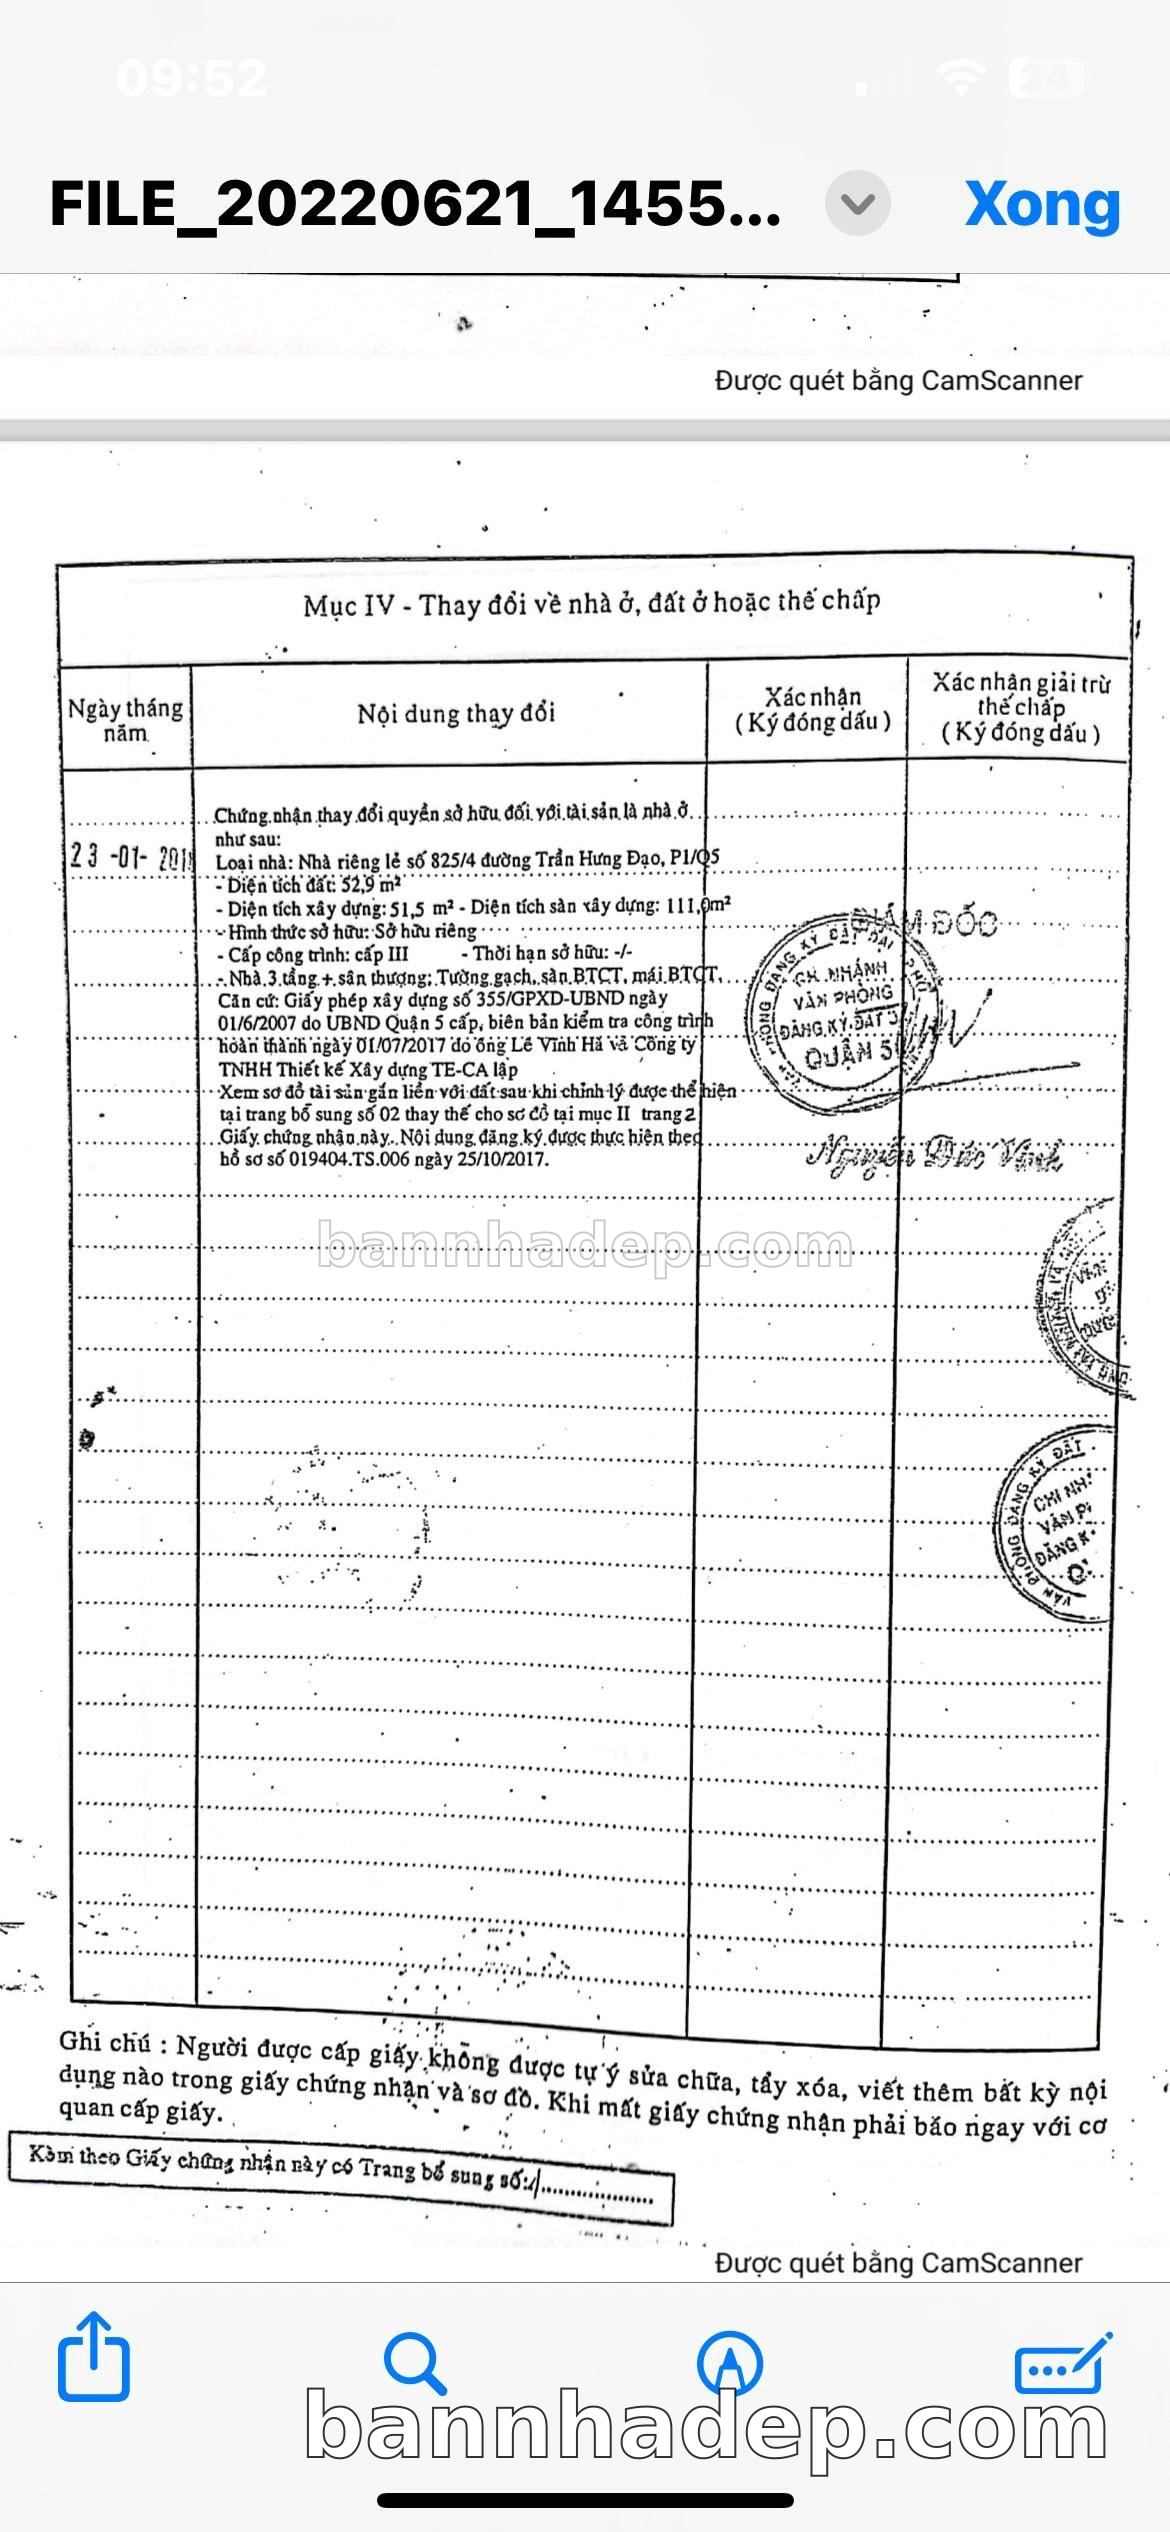 09:52
24
FILE_20220621_1455...
Xong
Được quét bằng CamScanner
Mục IV - Thay đổi về nhà ở, đất ở hoặc thế chấp
Ngày tháng năm
Nội dung thay đổi
Xác nhận
( Ký đóng dấu )
Xác nhận giải trừ
thế chấp
( Ký đóng dấu )
Chứng nhận thay đổi quyền sở hữu đối với tài sản là nhà ở
như sau:
23 -01- 201
Loại nhà: Nhà riêng lẻ số 825/4 đường Trần Hưng Đạo, P1/Q5
- Diện tích đất: 52,9 m²
- Diện tích xây dựng: 51,5 m² - Diện tích sàn xây dựng: 111,0m²
- Hình thức sở hữu: Sở hữu riêng
- Cấp công trình: cấp III - Thời hạn sở hữu: -/-
- Nhà 3 tầng + sân thượng; Tường gạch, sàn BTCT, mái BTCT.
Căn cứ: Giấy phép xây dựng số 355/GPXD-UBND ngày
01/6/2007 do UBND Quận 5 cấp, biên bản kiểm tra công trình
hoàn thành ngày 01/07/2017 do ông Lê Vĩnh Hà và Công ty
TNHH Thiết kế Xây dựng TE-CA lập
Xem sơ đồ tài sản gắn liền với đất sau khi chỉnh lý được thể hiện
tại trang bổ sung số 02 thay thế cho sơ đồ tại mục II trang 2
Giấy chứng nhận này. Nội dung đăng ký được thực hiện theo
hồ sơ số 019404.TS.006 ngày 25/10/2017.
GIÁM ĐỐC
CHI NHÁNH
VĂN PHÒNG
ĐĂNG KÝ ĐẤT Đ
QUẬN 5
Nguyễn Đức Vinh
bannhadep.com
VĂN PHÒNG ĐĂNG KÝ ĐẤT
CHI NH
VĂN P
ĐĂNG K
Q
Ghi chú : Người được cấp giấy không được tự ý sửa chữa, tẩy xóa, viết thêm bất kỳ nội
dung nào trong giấy chứng nhận và sơ đồ. Khi mất giấy chứng nhận phải báo ngay với cơ
quan cấp giấy.
Kèm theo Giấy chứng nhận này có Trang bổ sung số:
Được quét bằng CamScanner
bannhadep.com